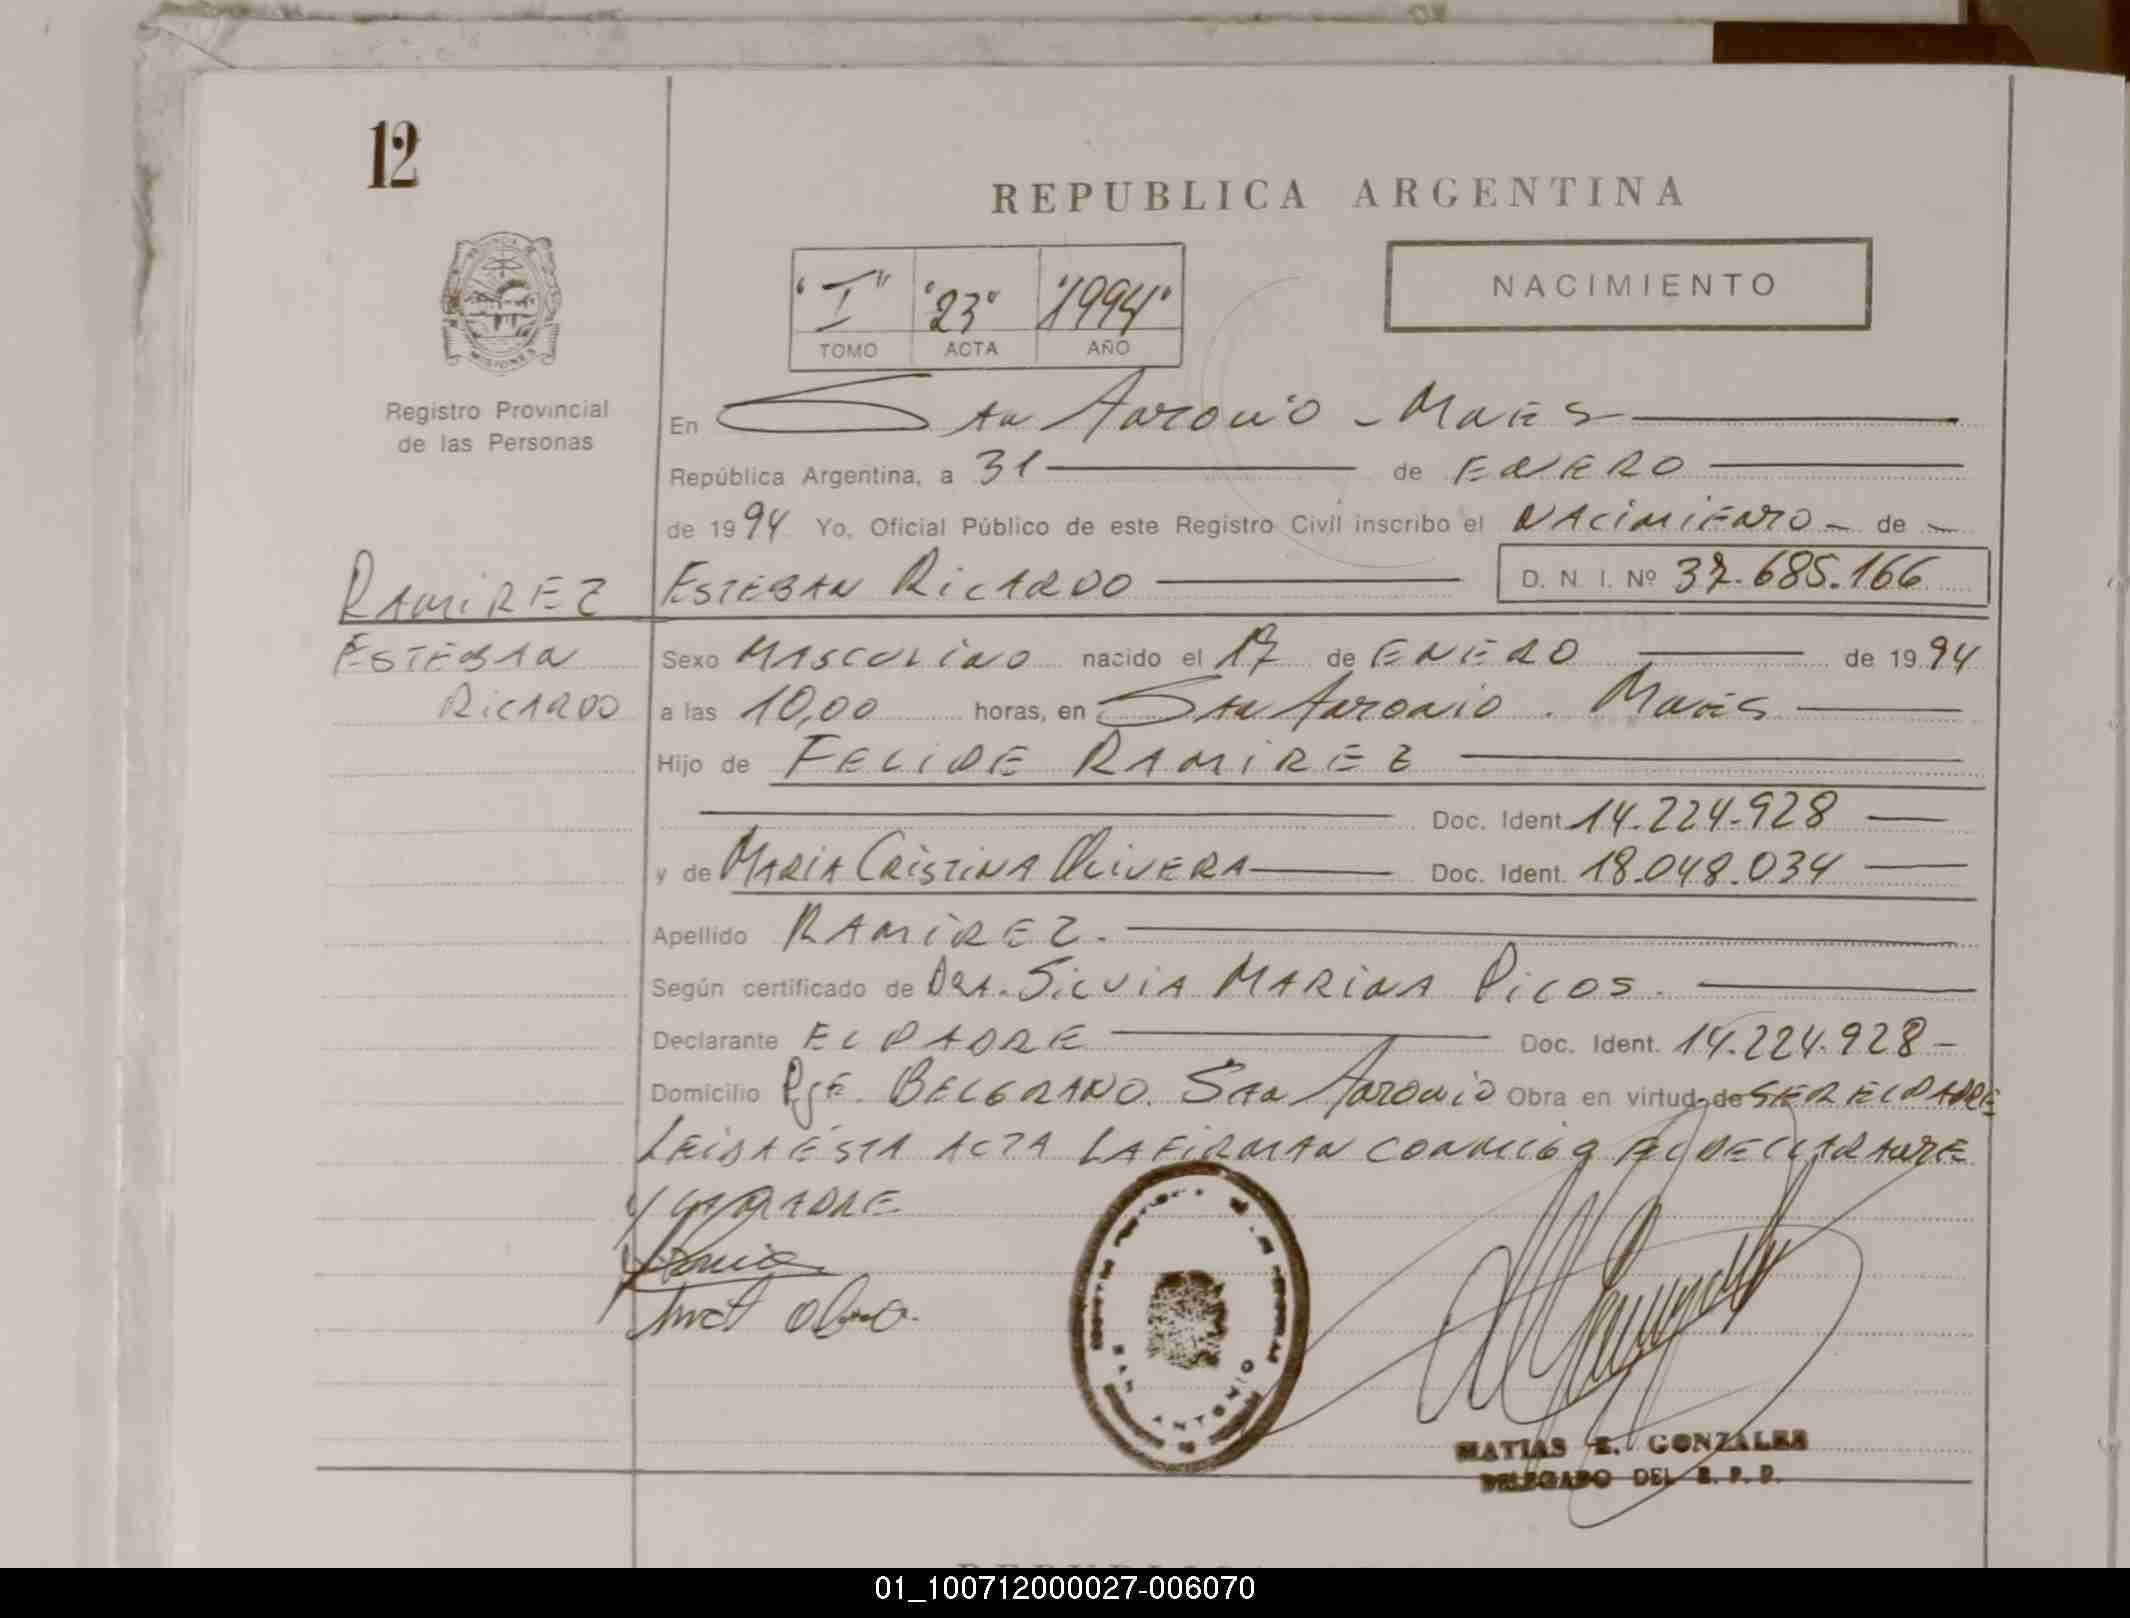 12
REPUBLICA ARGENTINA
NACIMIENTO
"I" "23" "1994"
TOMO ACTA AÑO
MISIONES
Registro Provincial
de las Personas
En San Antonio - Mnes
República Argentina, a 31 de ENERO
de 1994 Yo, Oficial Público de este Registro Civil inscribo el NACIMIENTO - de -
RAMIREZ ESTEBAN RICARDO D. N. I. Nº 37.685.166
ESTEBAN
RICARDO
Sexo MASCULINO nacido el 17 de ENERO de 1994
a las 10,00 horas, en San Antonio . Mnes
Hijo de FELIPE RAMIREZ
Doc. Ident. 14.224.928
y de MARIA CRISTINA OLIVERA Doc. Ident. 18.048.034
Apellido RAMIREZ.
Según certificado de DRA. SILVIA MARINA PICOS.
Declarante EL PADRE Doc. Ident. 14.224.928-
Domicilio PJE. BELGRANO. San Antonio Obra en virtud de SER EL PADRE
LEIDA ÉSTA ACTA LA FIRMAN CONMIGO EL DECLARANTE
Y LA MADRE
SAN ANTONIO
MATIAS E. GONZALES
DELEGADO DEL R. P. P.
01_100712000027-006070